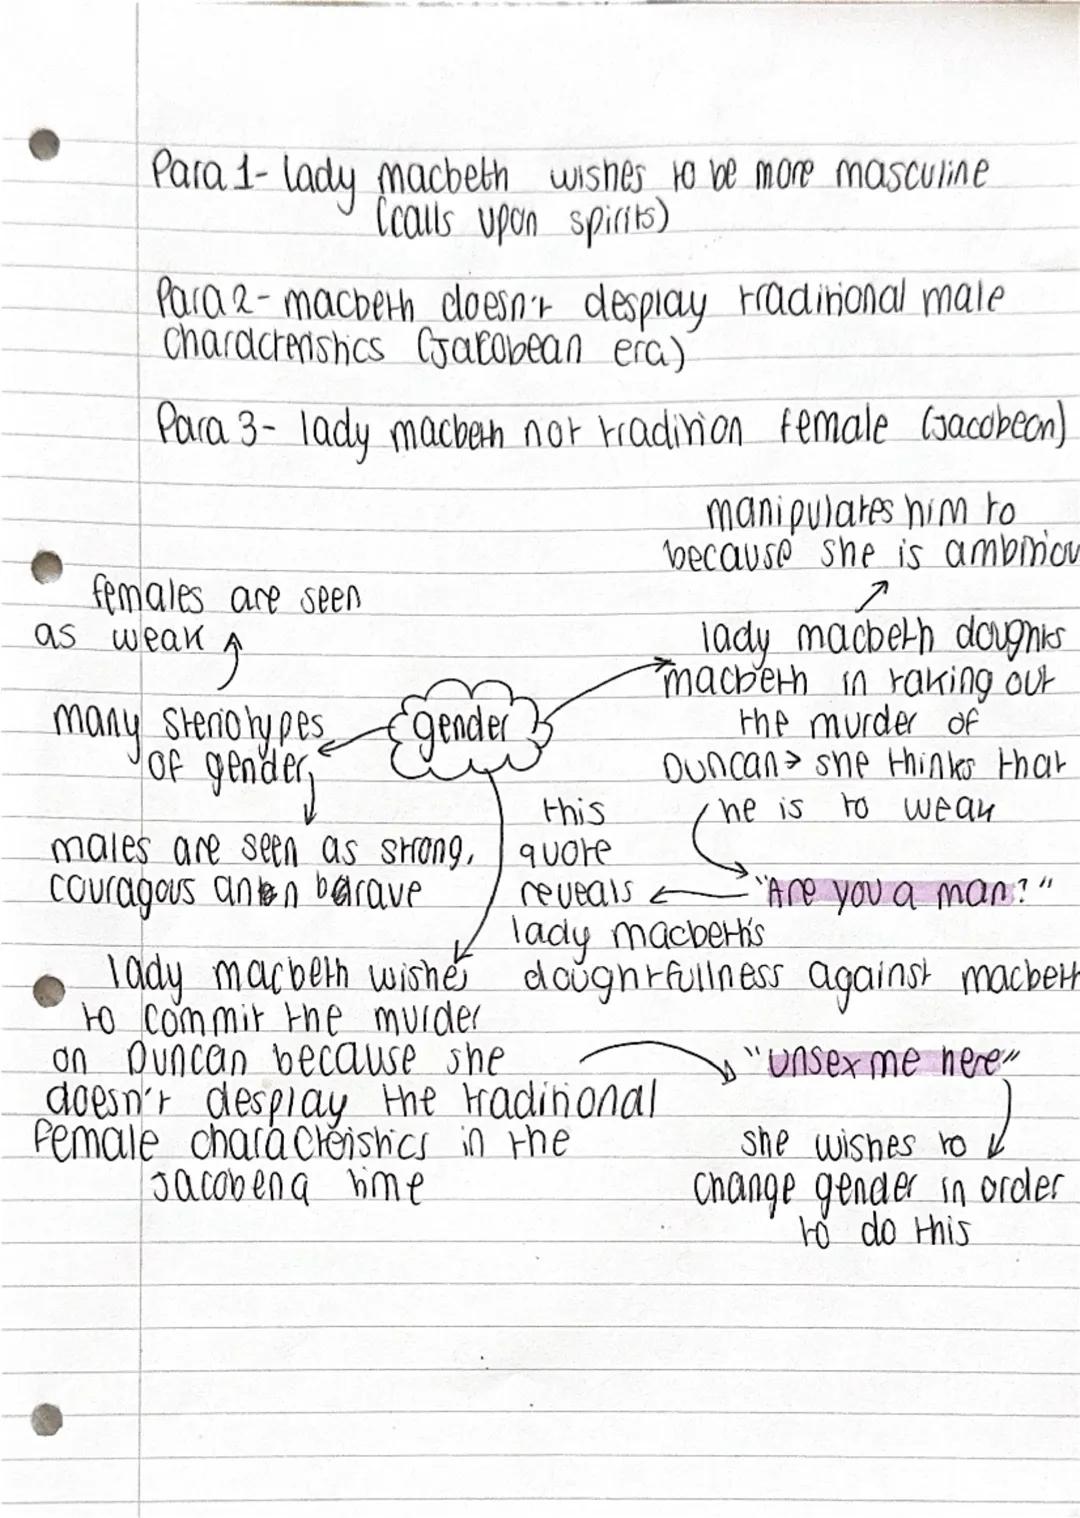 Para 1- lady macbeth wishes to be more masculine
(calls upon spirits)
Para 2- macbeth doesn't desplay traditional male
characteristics (Jacobean era)
Para 3- lady macbeth not tradition female (Jacobean)
manipulates him to
because she is ambitiou
females are seen
as weak
lady macbeth doughts
macbeth in taking out
the murder of
Duncan → she thinks that
he is to weak
gender
many steriotypes
of gender
males are seen as strong,
couragous barave
"Are you a man?"
this
quote
reveals
lady macbeth's
doughtfullness against macbeth
lady macbeth wishes
to commit the murder
on Duncan because she
doesn't desplay the traditional
female characteristics in the
Jacobena time
"unsex me here"
she wishes to
change gender in order
to do this